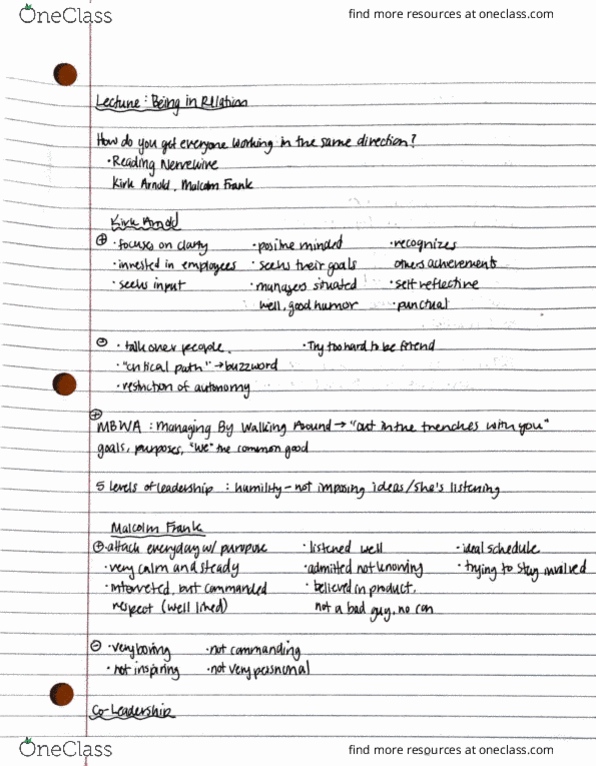 OneClass
find more resources at oneclass.com
Lecture: Being in Relation
How do you get everyone working in the same direction?
• Reading Nervewire
Kirk Arnold, Malcolm Frank
Kirk Arnold
⊕ • focuses on clarity • positive minded • recognizes
• invested in employees • seeks their goals others achievements
• seeks input • managers situated • self reflective
well, good humor • punctual
⊖ • talk over people. • Try too hard to be friend
• "critical path" → buzzword
• restriction of autonomy
⊕
MBWA: Managing By Walking Around → "out in the trenches with you"
goals, purposes, "we" the common good
5 levels of leadership: humility - not imposing ideas/she's listening
Malcolm Frank
⊕ • attack everyday w/ purpose • listened well • ideal schedule
• very calm and steady • admitted not knowing • trying to stay involved
• introverted, but commanded • believed in product,
respect (well liked) not a bad guy, no con
⊖ • very boring • not commanding
• not inspiring • not very personal
Co-Leadership
OneClass
find more resources at oneclass.com